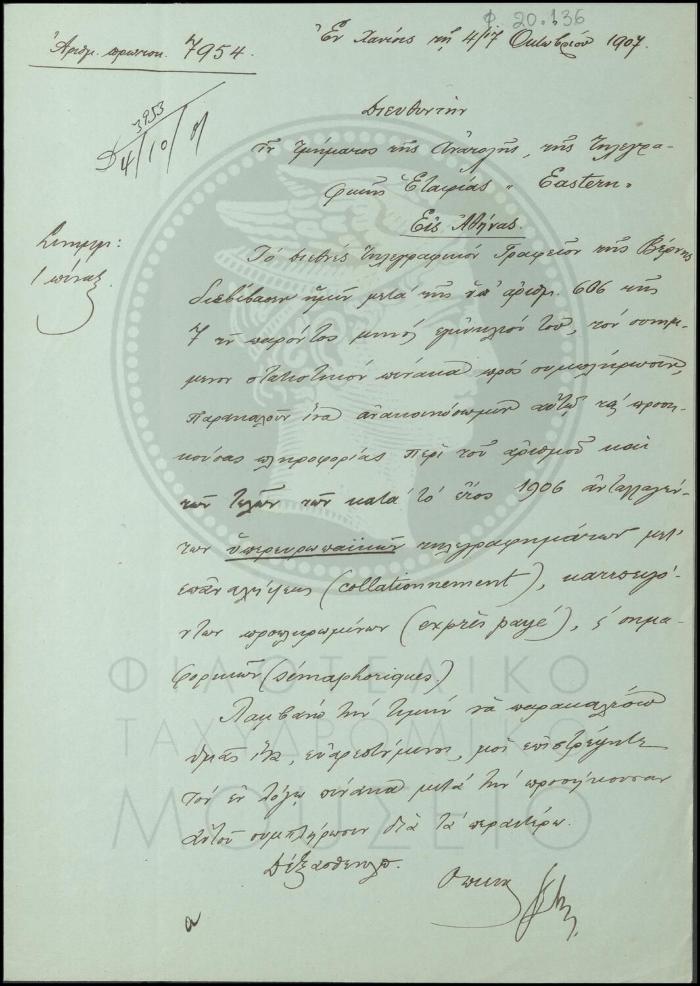 Φ 20.136
Ἀριθμ. πρωτοκ. 7954.
Ἐν Χανίοις τῇ 4/17 Ὀκτωβρίου 1907.
3953
4/10/07
Διευθυντὴν
τοῦ τμήματος τῆς Ἀνατολῆς, τῆς τηλεγρα-
φικῆς Ἑταιρίας "Eastern"
Εἰς Ἀθήνας.
Συνημμ:
1 πίναξ
Τὸ διεθνὲς τηλεγραφικὸν Γραφεῖον τῆς Βέρνης
διεβίβασεν ἡμῖν μετὰ τῆς ὑπ' ἀριθμ. 606 τῆς
7 τοῦ παρόντος μηνὸς ἐγκυκλίου του, τὸν συνημ-
μένον στατιστικὸν πίνακα πρὸς συμπλήρωσιν,
παρακαλοῦν ἵνα ἀνακοινώσωμεν αὐτῷ τὰς προση-
κούσας πληροφορίας περὶ τοῦ ἀριθμοῦ καὶ
τῶν τελῶν τῶν κατὰ τὸ ἔτος 1906 ἀνταλλαγέν-
των ὑπερευρωπαϊκῶν τηλεγραφημάτων μετ'
ἐπαναλήψεως (collationnement), κατεπειγό-
ντων προπληρωμένων (exprès payé), ἢ σημα-
φορικῶν (sémaphoriques.)
Λαμβάνω τὴν τιμὴν νὰ παρακαλέσω
ὑμᾶς ἵνα, εὐαρεστούμενοι, μοὶ ἐπιστρέψητε
τὸν ἐν λόγῳ πίνακα μετὰ τὴν προσήκουσαν
αὐτοῦ συμπλήρωσιν διὰ τὰ περαιτέρω.
ΦΙΛΟΤΕΛΙΚΟ
ΤΑΧΥΔΡΟΜΙΚΟ
ΜΟΥΣΕΙΟ